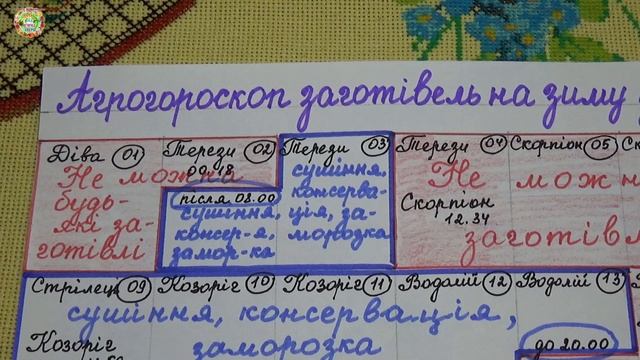 Агрогороскоп заготівель на зиму
Діва 01 Терези 02 Терези 03 Терези 04 Скорпіон 05
Не можна
будь-
які за-
готівлі
після 03.00
сушіння,
консер-я,
замор-ка
сушіння,
консерва-
ція, за-
морозка
Скорпіон
12.34
Не можн
заготівл
Стрілець 09 Козоріг 10 Козоріг 11 Водолій 12 Водолій 13
сушіння, консервація,
заморозка
Козоріг
до 20.00